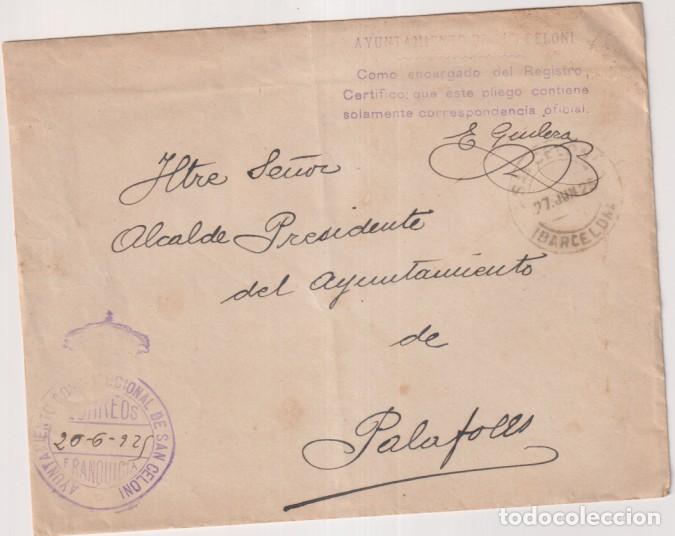 AYUNTAMIENTO DE SAN CELONI
Como encargado del Registro,
Certifico: que este pliego contiene
solamente correspondencia oficial.
E Guilera
27.JUN.25
(BARCELONA)
Iltre Señor
Alcalde Presidente
del Ayuntamiento
de
Palafolls
AYUNTAMIENTO CONSTITUCIONAL DE SAN CELONI
CORREOS
20-6-925
FRANQUICIA
todocoleccion.net